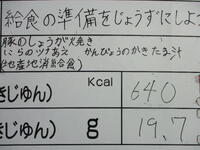 給食の準備をじょうずにしよ
豚のしょうが焼き
にらのツナあえ かんぴょうのかきたま汁
(地産地消給食)
Kcal
きじゅん) 640
きじゅん) g 19.7